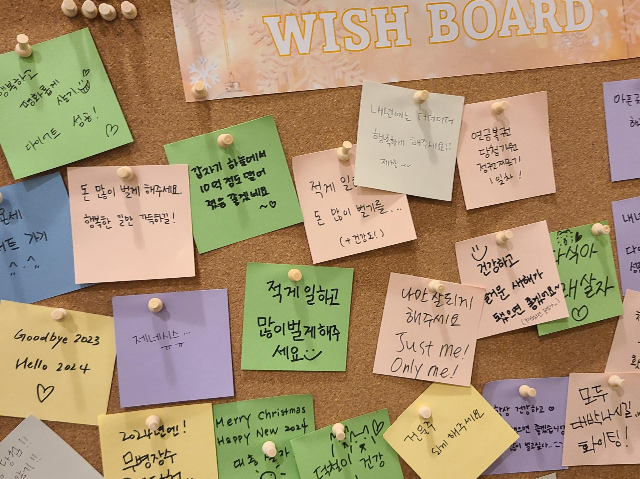 WISH BOARD
행복하고
평화롭게
살기
다이어트 성공!
돈 많이 벌게 해주세요.
행복한 일만 가득하길!
갑자기 하늘에서
10억 정도 떨어
졌음 좋겠네요
적게 일하
돈 많이 벌기를...
(+건강도!)
내년에는 더더더더
행복하게 해주세요!!
제발~
연금복권
당첨기원
1일차!
적게 일하고
많이벌게해주
세요
나만 잘되게
해주세요
Just me!
Only me!
건강하고
새해가
됐으면 좋겠어요~
살자
Goodbye 2023
Hello 2024
제네시스...
ㅠㅠ
2024년엔!
무병장수
Merry Christmas
Happy New 2024
건강
건물주
되게 해주세요
항상 건강하고
모두
대박나시길
화이팅!